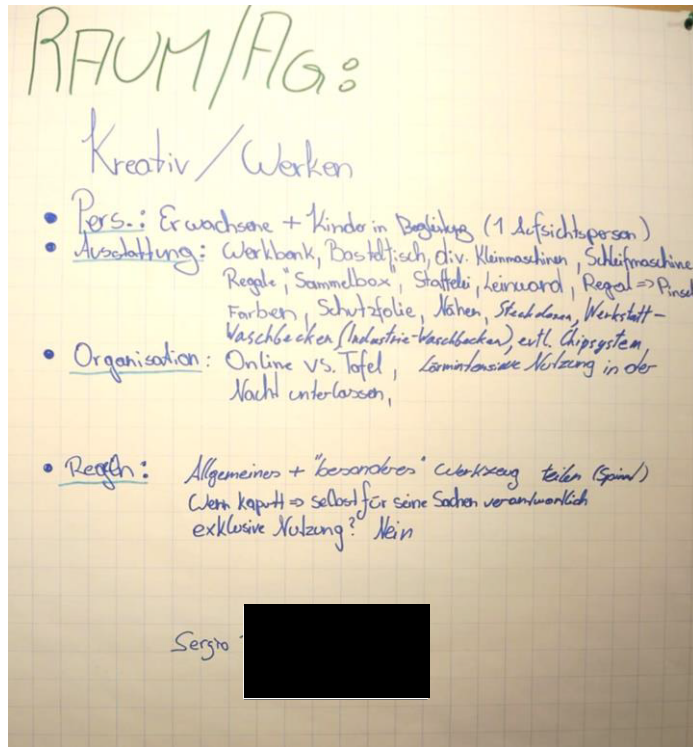 RAUM/AG:
Kreativ/Werken
• Pers.: Erwachsene + Kinder in Begleitung (1 Aufsichtsperson)
• Ausstattung: Werkbank, Basteltisch, div. Kleinmaschinen, Schleifmaschine
Regale, "Sammelbox", Staffelei, Leinwand, Regal => Pinsel
Farben, Schutzfolie, Nähen, Steckdosen, Werkstatt-
Waschbecken (Industrie-Waschbecken), evtl. Chipsystem,
• Organisation: Online vs. Tafel, Lärmintensive Nutzung in der
Nacht unterlassen,
• Regeln: Allgemeines + "besonderes" Werkzeug teilen (Spind)
Wenn kaputt => selbst für seine Sachen verantwortlich
exklusive Nutzung? Nein
Sergio